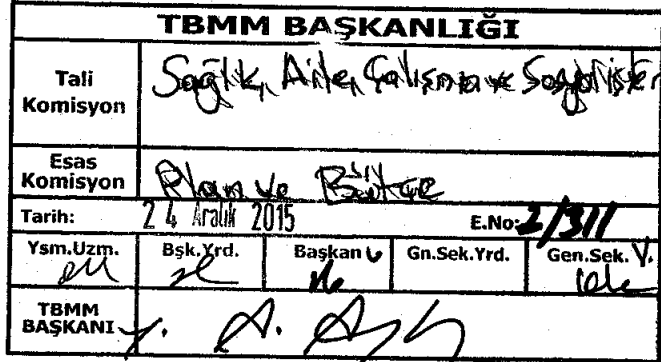 TBMM BAŞKANLIĞI
Tali Komisyon
Sağlık, Aile, Çalışma ve Sosyal İşler
Esas Komisyon
Plan ve Bütçe
Tarih: 24 Aralık 2015 E.No: 2/311
Ysm.Uzm. Bşk.Yrd. Başkan Gn.Sek.Yrd. Gen.Sek. V.
TBMM BAŞKANI